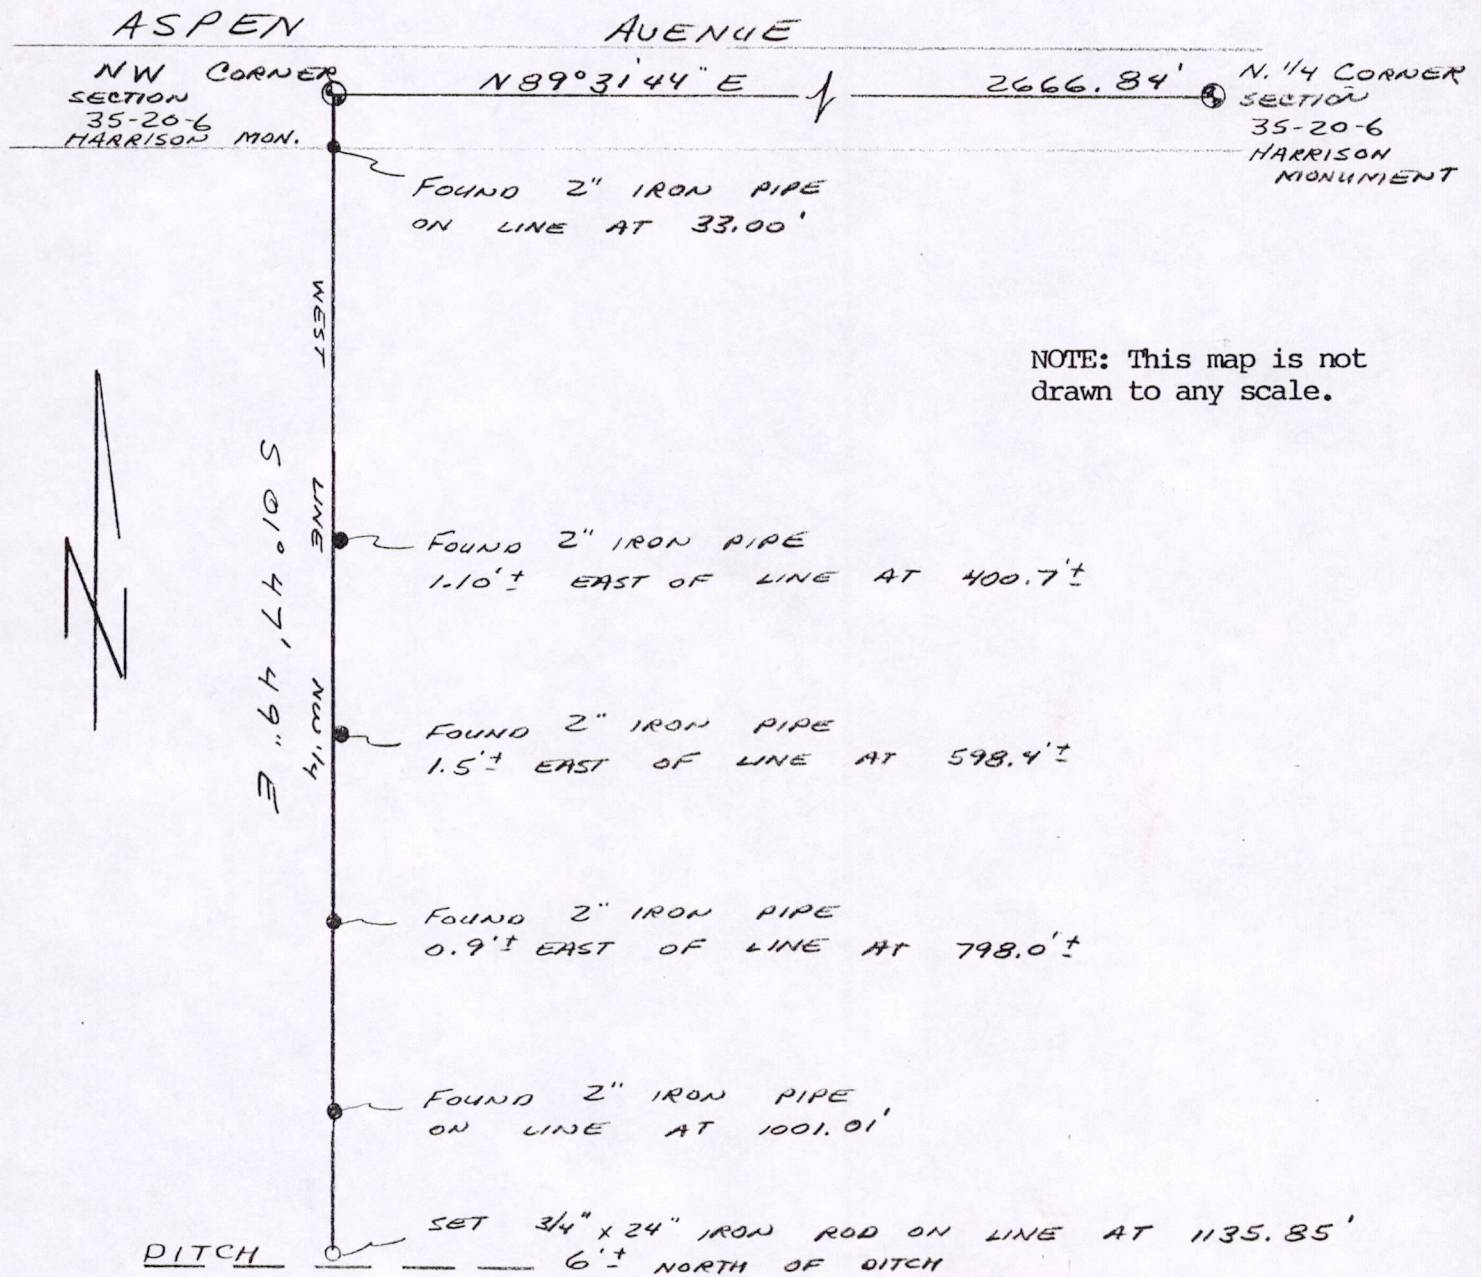 ASPEN AVENUE
NW CORNER
SECTION
35-20-6
HARRISON MON.
N89°31'44" E
2666.84'
N. 1/4 CORNER
SECTION
35-20-6
HARRISON
MONUMENT
FOUND 2" IRON PIPE
ON LINE AT 33.00'
WEST LINE NW 1/4
S 01° 47' 49" E
N
NOTE: This map is not
drawn to any scale.
FOUND 2" IRON PIPE
1.10'± EAST OF LINE AT 400.7'±
FOUND 2" IRON PIPE
1.5'± EAST OF LINE AT 598.4'±
FOUND 2" IRON PIPE
0.9'± EAST OF LINE AT 798.0'±
FOUND 2" IRON PIPE
ON LINE AT 1001.01'
SET 3/4" x 24" IRON ROD ON LINE AT 1135.85'
6'± NORTH OF DITCH
DITCH